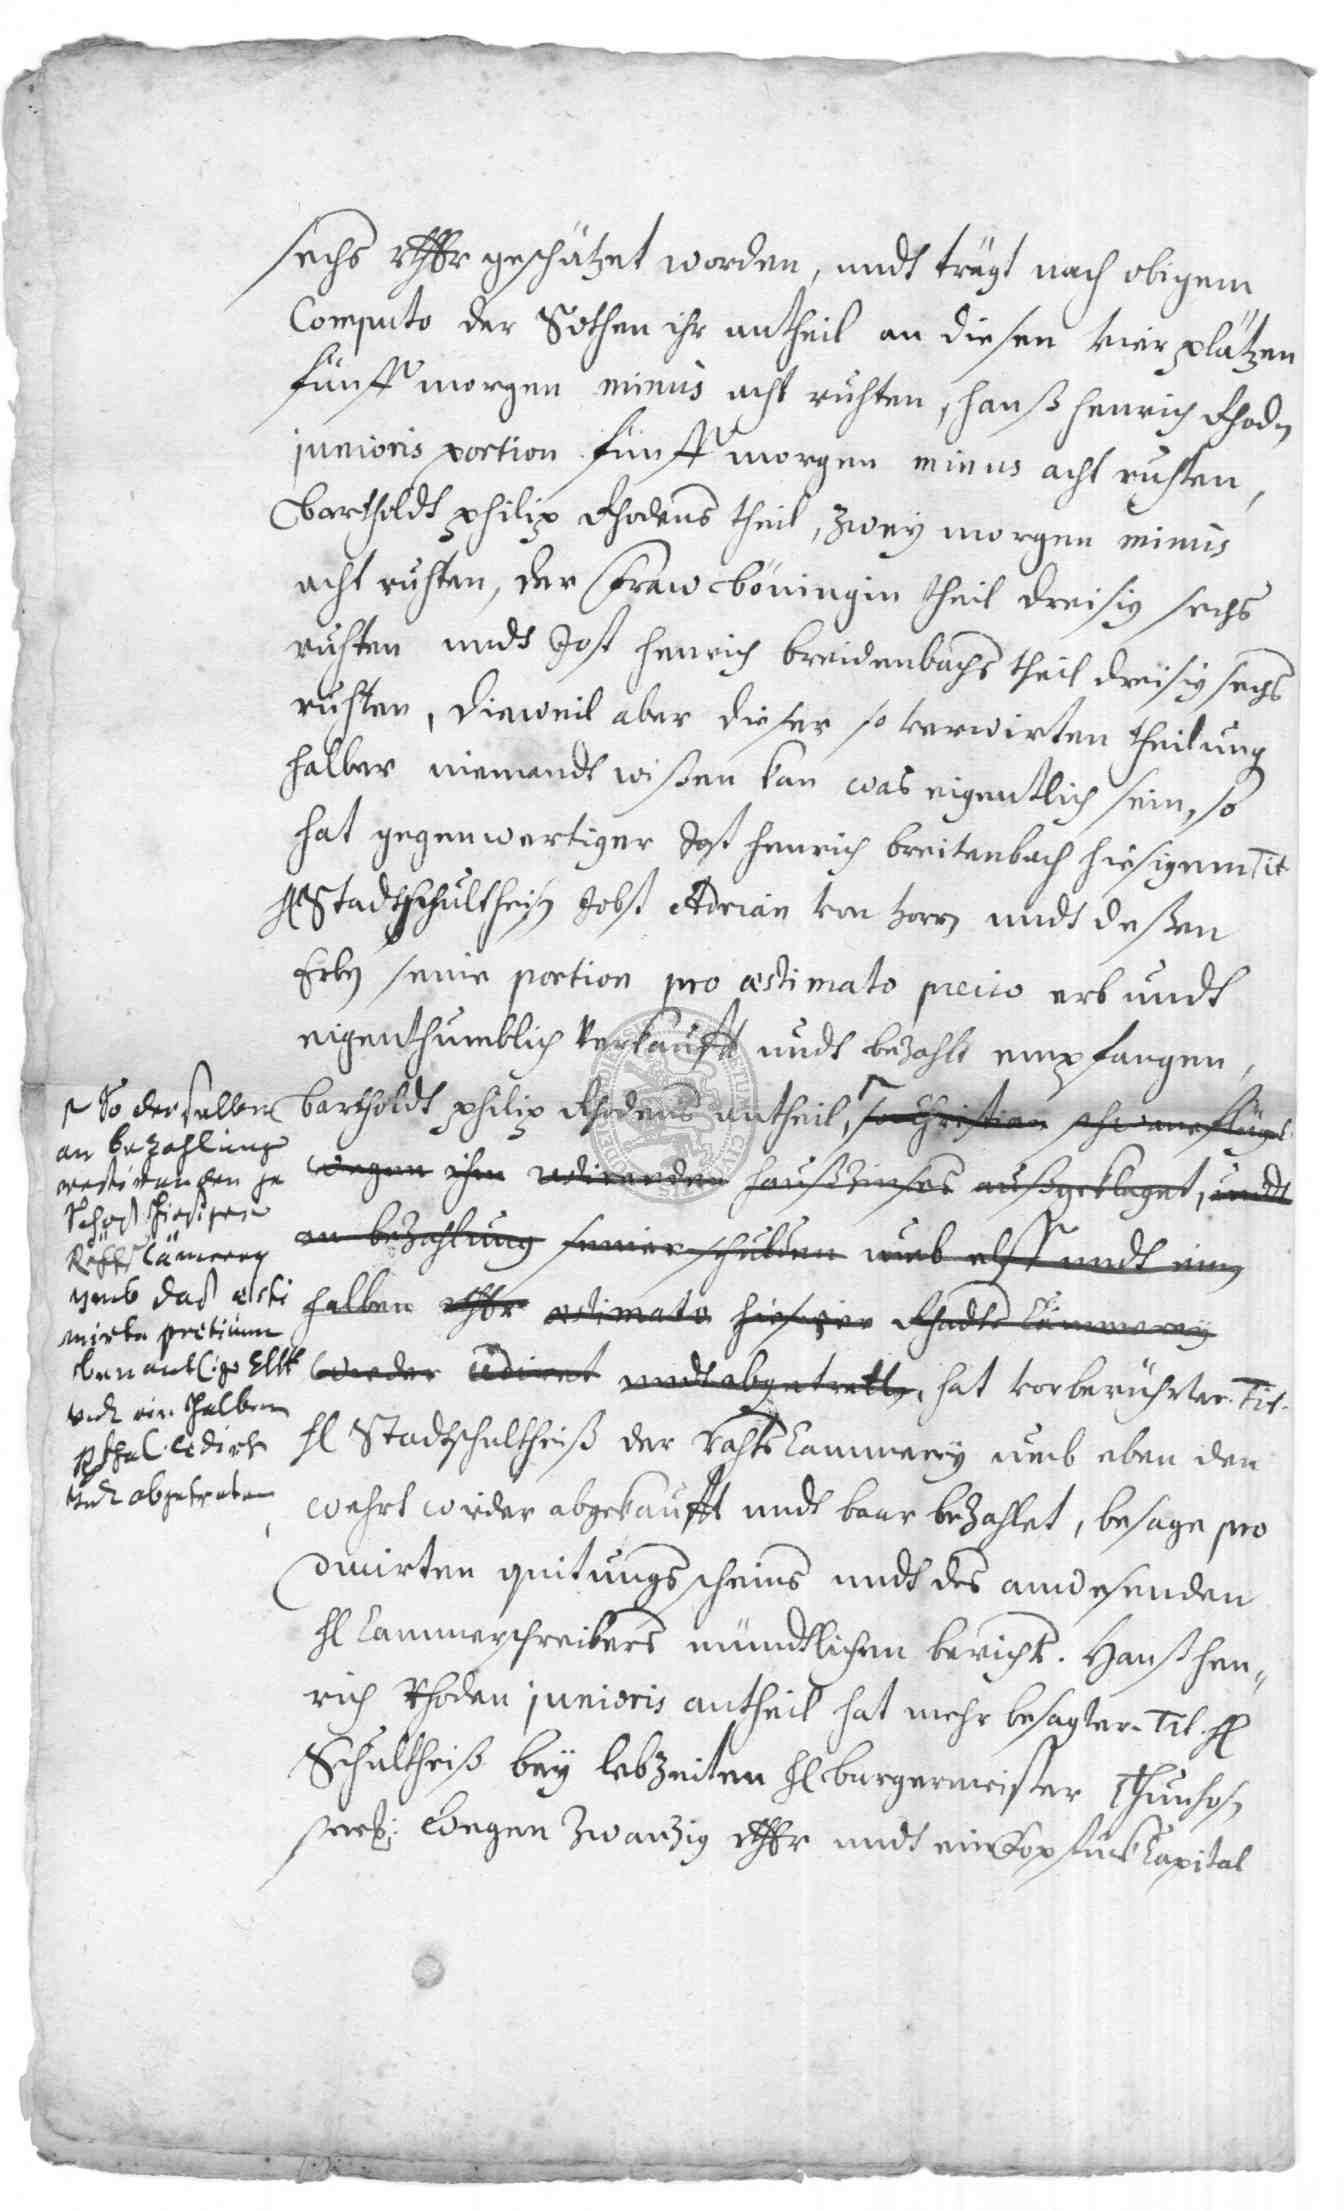 sechs rthlr geschätzet worden, undt trägt nach obigem
Computo der Sothen ihr antheil an diesen vier plätzen
fünff morgen minus acht ruhten, hanß henrich Rhoden
junioris portion fünff morgen minus acht ruhten,
bartholdt philip Rhodens theil, zwey morgen minus
acht ruhten, der Fraw böningin theil dreisig sechs
ruhten undt Jost henrich breidenbachs theil dreisig sechs
ruhten, dieweil aber dieser so verwirten theilung
halber niemandt wißen kan was eigentlich sein, so
hat gegenwertiger Jost henrich breitenbach hiesigem Tit
H Stadtschultheiß Jobst Adrian von undt deßen
Erben seine portion pro æstimato precio erb undt
eigenthumblich verkaufft undt bezahlt empfangen,
bartholdt philip Rhodens antheil, so Christian schwaneflügel
wegen ihm haußzinses außgeklaget, undt
an bezahlung seiner schulden umb elff undt ein
halben rthlr æstimato hiesiger Rhadts Cämmerey
wieder cediret undt abgetretten, hat vorberührter Tit.
H Stadtschultheiß der Rahts Cammerey umb eben den
wehrt wieder abgekaufft undt baar bezahlet, besage pro
ducirten quitungsscheins undt des anwesenden
H Cammerschreibers mündtlichen berichts. Hanß hen,,
rich Rhoden junioris antheil hat mehr besagter Tit. H
Schultheiß bey lebzeiten H burgermeister
seel: wegen zwanzig rthlr undt ein Kopstück Capital
So derselbe
an bezahlung

Schoß hiesiger
Cämerey
umb daß æsti
mirte pretium
benantl: Elff
undt ein halben
rthal: cedirt
undt abgetreten